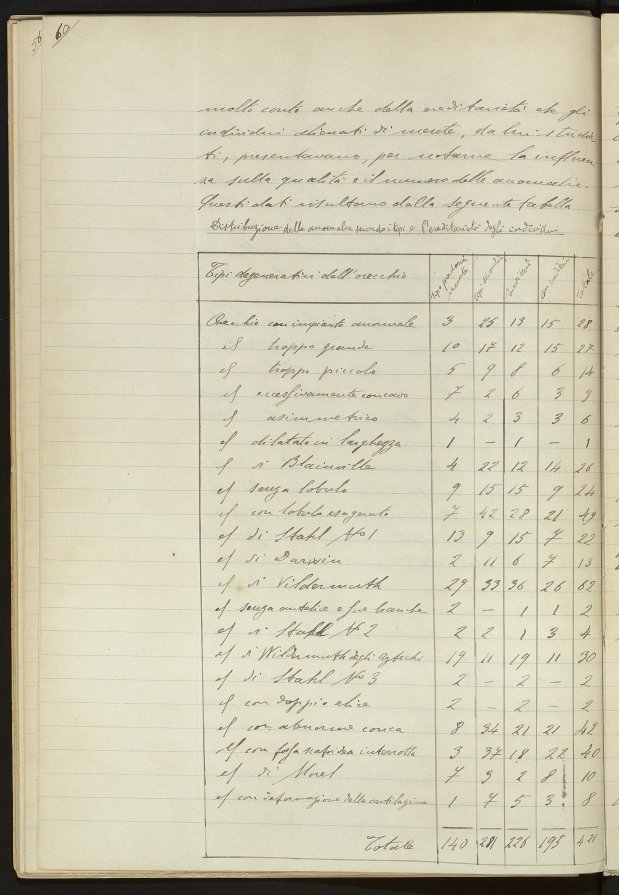 56 60
molto conto anche della ereditarietà che gli
individui alienati di mente, da lui studia
ti, presentavano, per notarne la influen
za sulla qualità e il numero delle anomalie.
Questi dati risultano dalla seguente tabella
Distribuzione delle anomalie secondo i tipi e l'ereditarietà degli individui
Tipi degenerativi dell'orecchio Totale
Orecchio con impianto anormale 3 25 13 15 28
id troppo grande 10 17 12 15 27
id troppo piccolo 5 9 8 6 14
id eccessivamente concavo 7 2 6 3 9
id asimmetrico 4 2 3 3 6
id dilatato in larghezza 1 – 1 – 1
id di Blainville 4 22 12 14 26
id senza lobulo 9 15 15 9 24
id con lobulo esagerato 7 42 28 21 49
id di Stahl No 1 13 9 15 7 22
id di Darwin 2 11 6 7 13
id di Vildermuth 29 33 36 26 62
id senza antelice e sue branche 2 – 1 1 2
id di Stahl No 2 2 2 1 3 4
id di Wildermuth degli Aztechi 19 11 19 11 30
id di Stahl No 3 2 – 2 – 2
id con doppio elice 2 – 2 – 2
id con abnorme conca 8 34 21 21 42
id con fossa scafoidea interrotta 3 37 18 22 40
id di Morel 7 3 2 8 10
id con deformazione della cartilagine 1 7 5 3 8
Totale 140 281 226 195 421